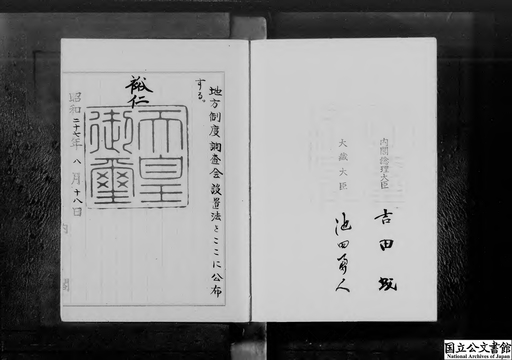 内閣総理大臣 吉田茂
大蔵大臣 池田勇人
地方制度調査会設置法をここに公布
する。
裕仁
天皇
御璽
昭和二十七年八月十八日
国立公文書館
National Archives of Japan